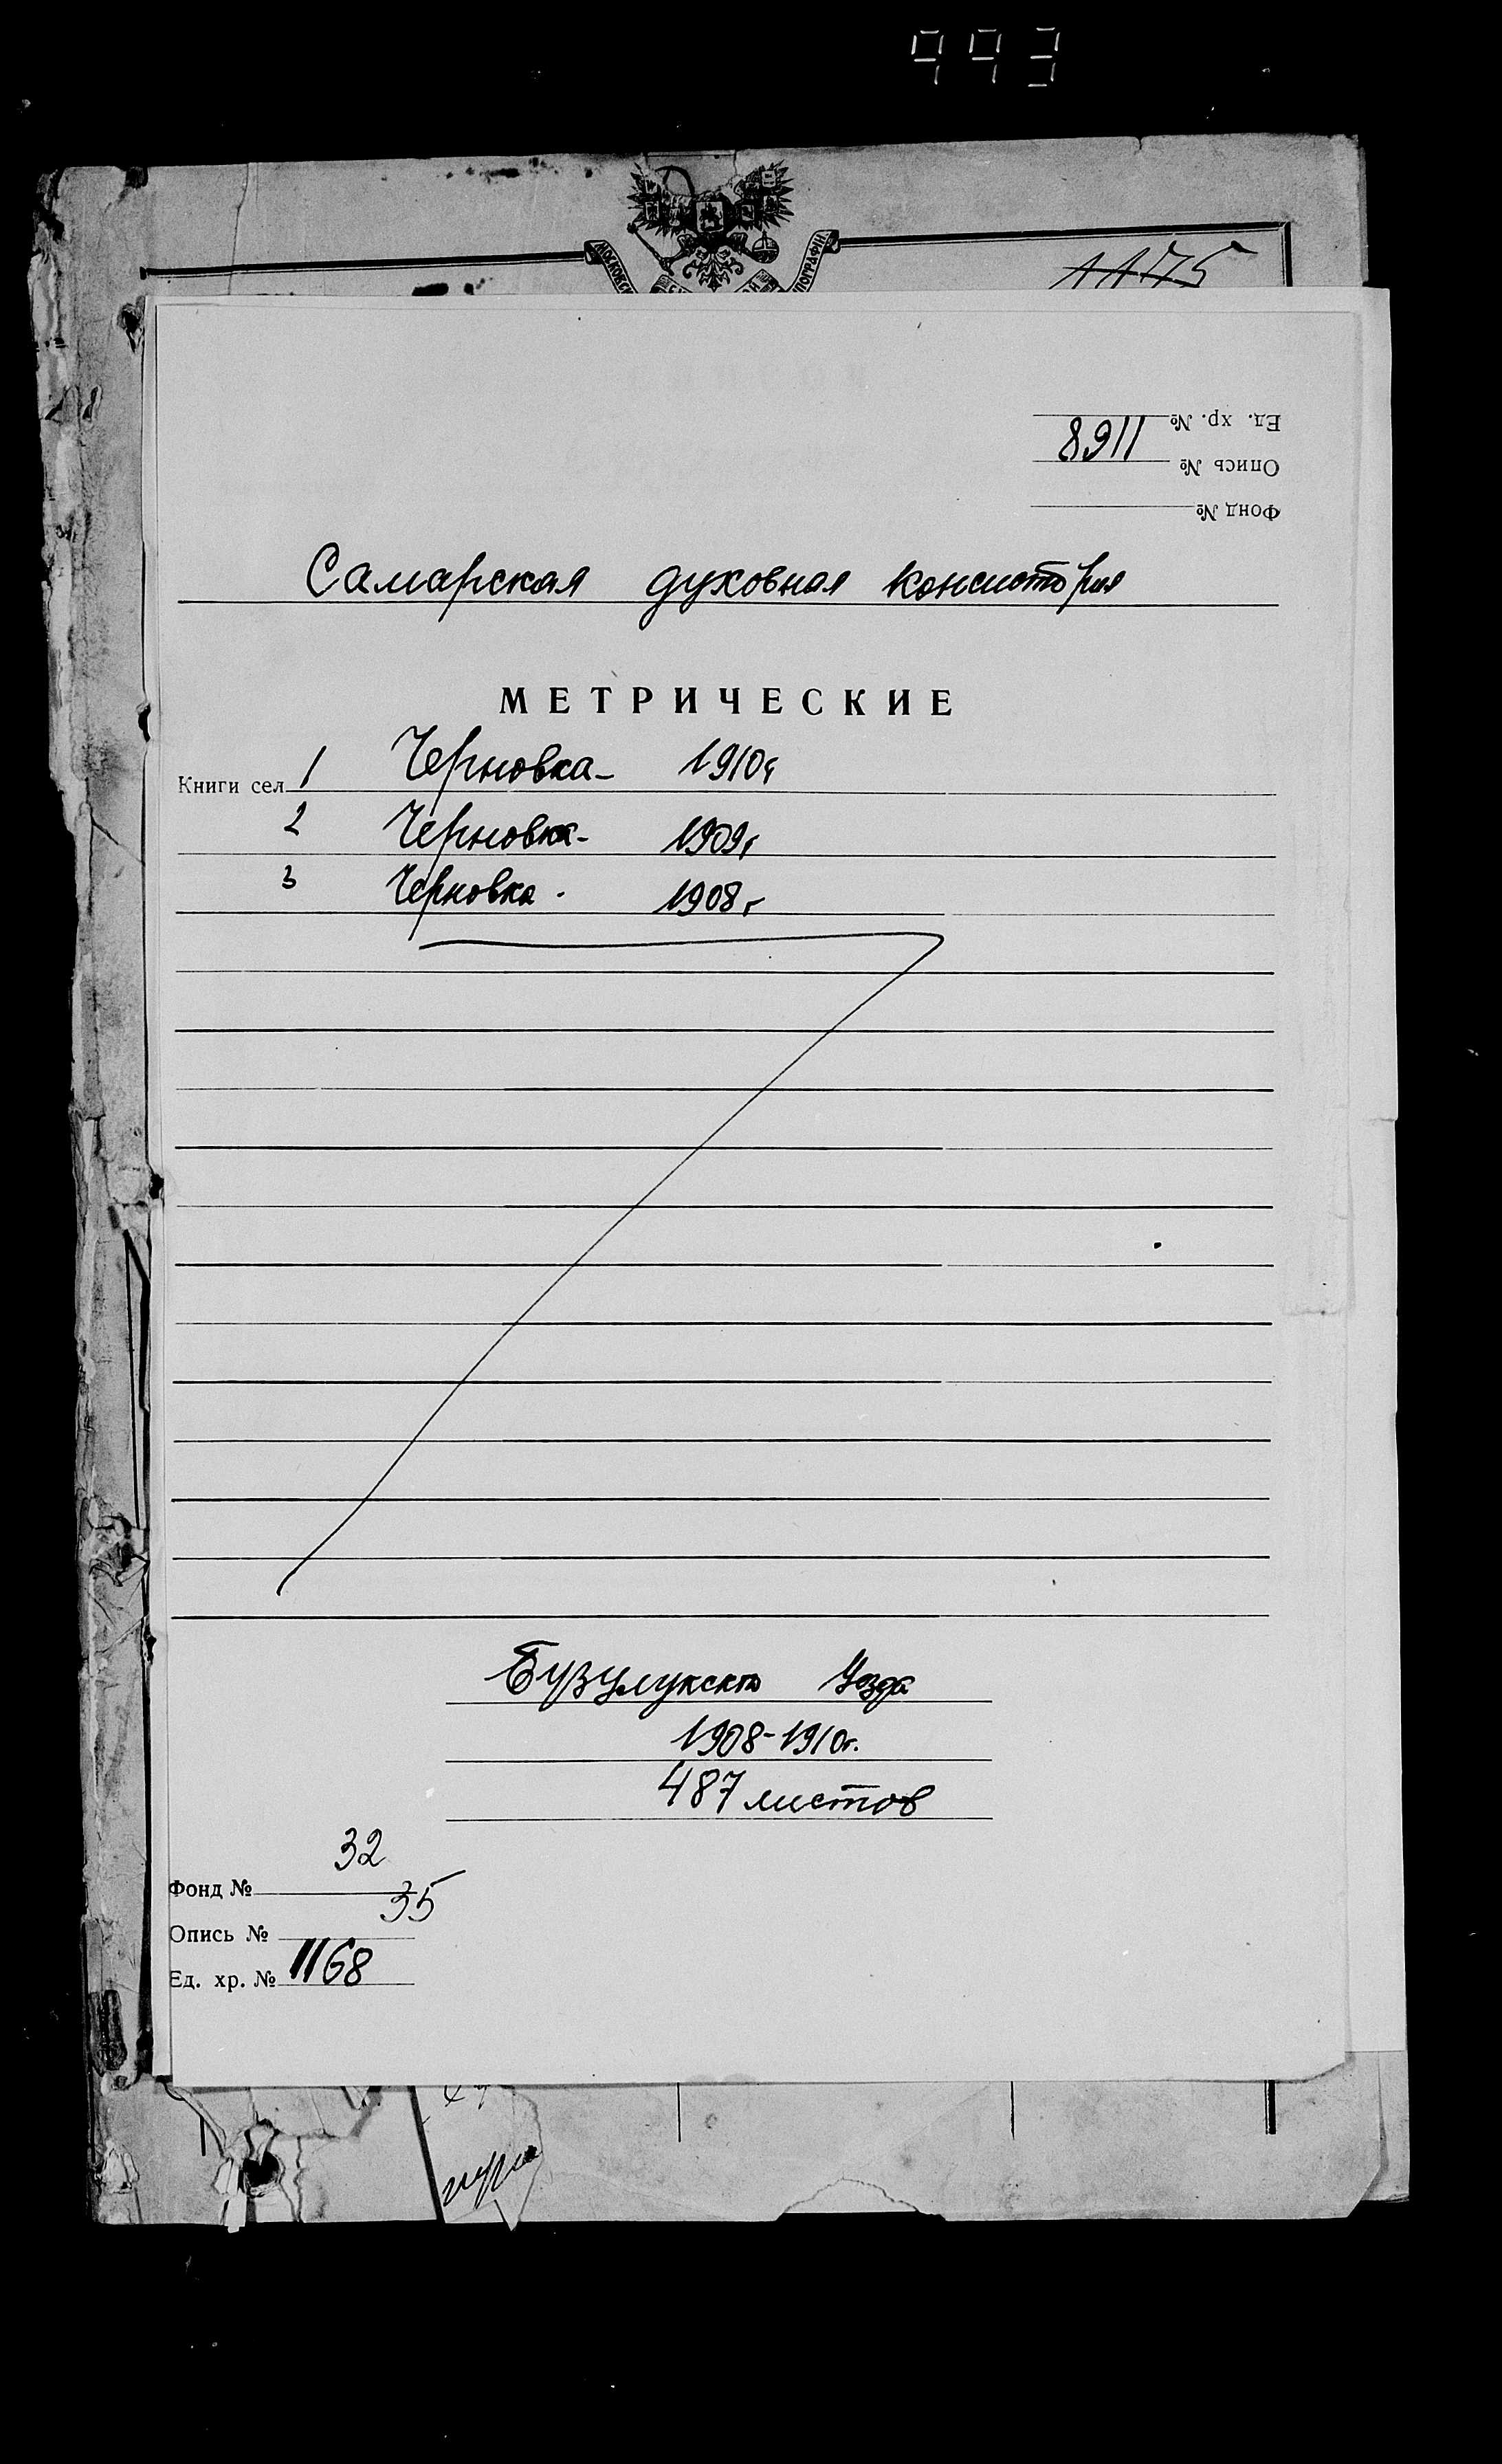 993
МОСКОВСК
ПОГРАФІИ
1175
Ед. хр. №
Опись № 1168
Фонд №
Самарская духовная консистория
МЕТРИЧЕСКИЕ
Книги сел 1 Черновка - 1910г
2 Черновка - 1909г
3 Черновка - 1908г
Бузулукского Уезда
1908-1910г.
487 листов
Фонд № 32
Опись № 35
Ед. хр. № 1168